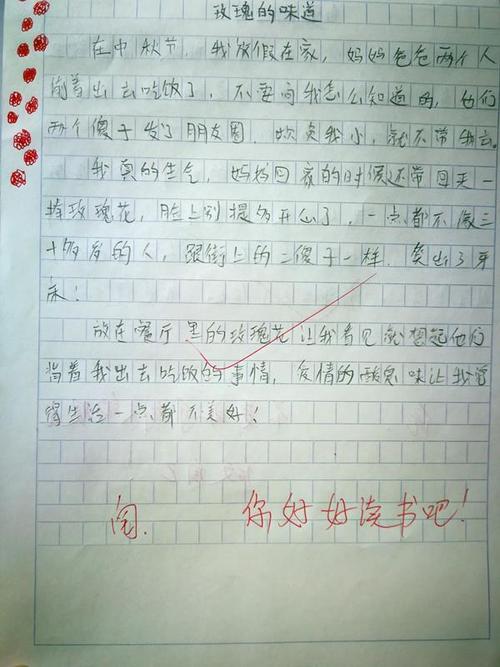 玫瑰的味道
在中秋节,我放假在家,妈妈爸爸两个人
背着出去吃饭了,不要问我怎么知道的,他们
两个傻子发了朋友圈.欺负我小,就不带我去。
我真的生气,妈妈回家的时候还带回来一
捧玫瑰花,脸上别提多开心了,一点都不像三
十多岁的人,跟街上的二傻子一样.笑出了牙
床!
放在餐厅里的玫瑰花让我看见就想起他们
背着我出去吃饭的事情,爱情的酸臭味让我觉
得生活一点都不美好!
阅.
你好好读书吧!